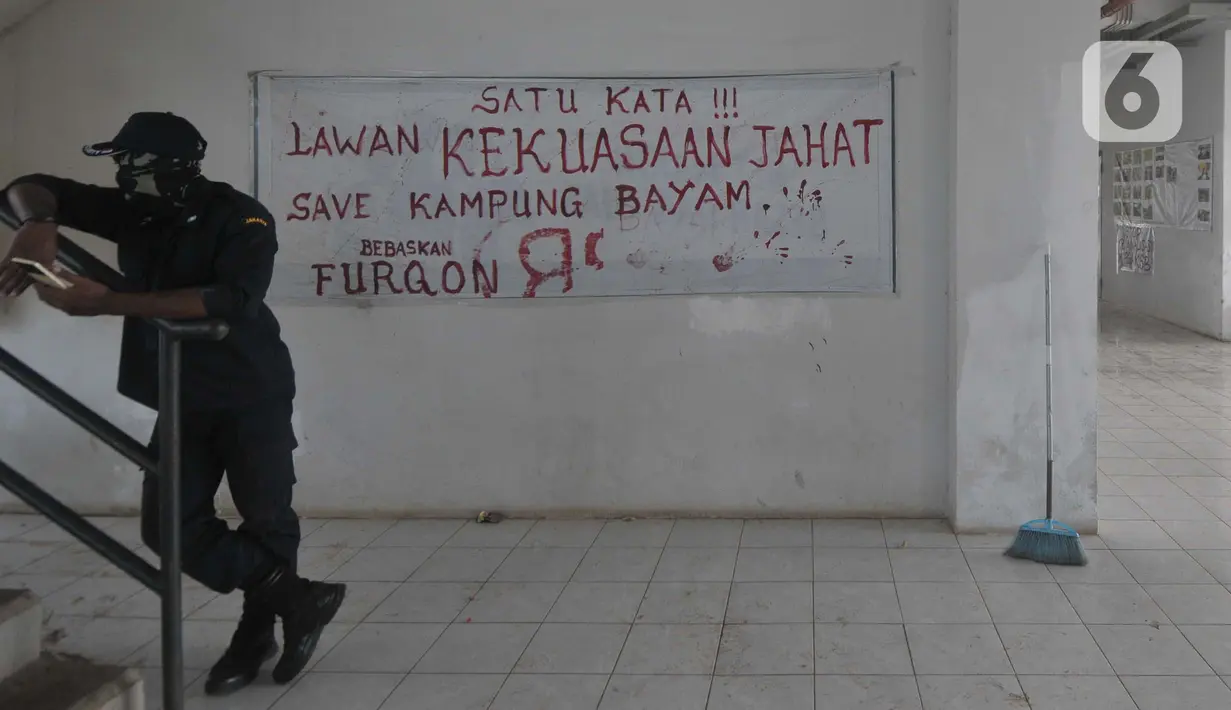 SATU KATA !!!
LAWAN KEKUASAAN JAHAT
SAVE KAMPUNG BAYAM.
BEBASKAN
FURQON
6